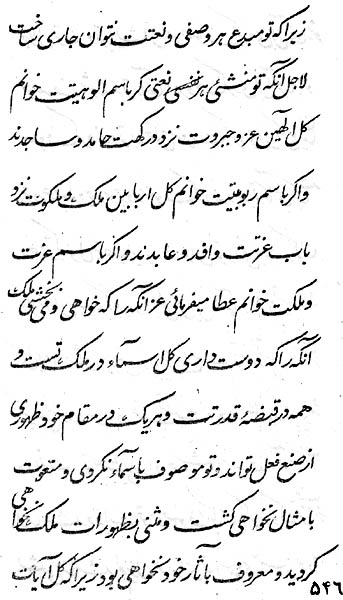 زیراکه تو مبدع هر وصفی و نعتت نتوان جاری ساخت
لاجل آنکه تو منشئی هر نعتی گر باسم الوهیتت خوانم
کل الٓهین عز و جبروت نزد درگهت حامد و ساجدند
و اگر باسم ربوبیتت خوانم کل اربابین ملک و ملکوت نزد
باب عزتت وافد و عابدند و اگر باسم عزت
و ملکت خوانم عطا میفرمائی عز آنکه را که خواهی و می بخشی ملک
آنکه را که دوست داری کل اسماء در ملک تست و
همه در قبضهٔ قدرتت و هر یک در مقام خود ظهوری
از صنع فعل تواند و تو موصوف باسماء نگردی و منعوت
بامثال نخواهی گشت و مثنی بظهورات ملک نخواهی
گردید و معروف بآثار خود نخواهی بود زیرا که کل آیات
۵۴۶